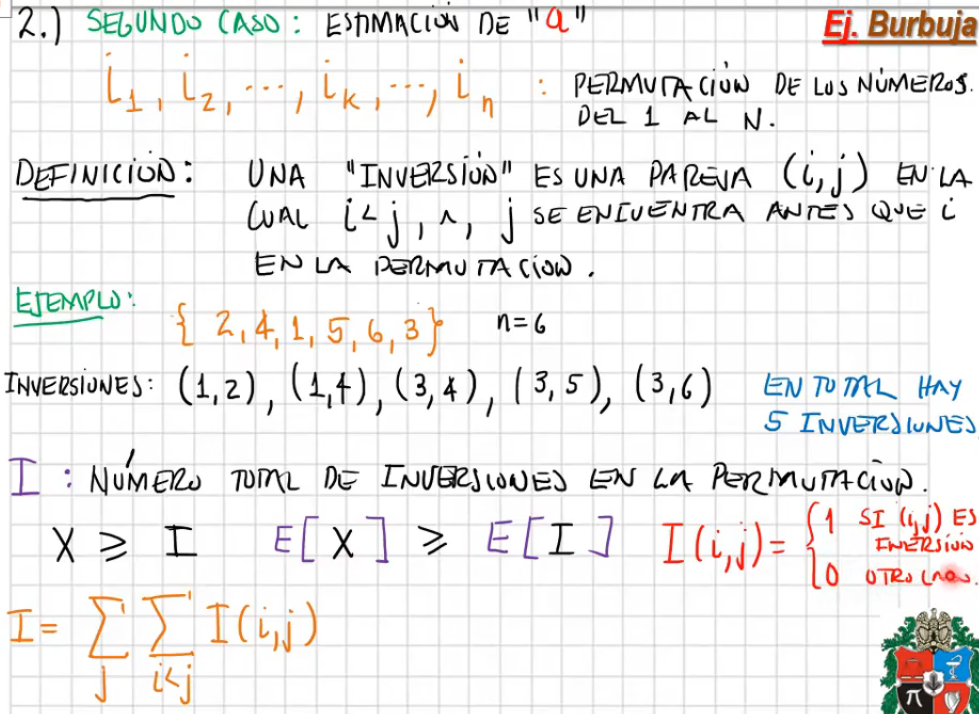 2.) SEGUNDO CASO: ESTIMACIÓN DE "a"
Ej. Burbuja
i1, i2, ..., ik, ..., in : PERMUTACIÓN DE LOS NÚMEROS.
DEL 1 AL N.
DEFINICIÓN: UNA "INVERSIÓN" ES UNA PAREJA (i,j) EN LA
CUAL i<j, ∧, j SE ENCUENTRA ANTES QUE i
EN LA PERMUTACIÓN.
EJEMPLO: { 2,4,1,5,6,3} n=6
INVERSIONES: (1,2), (1,4), (3,4), (3,5), (3,6) EN TOTAL HAY
5 INVERSIONES
I : NÚMERO TOTAL DE INVERSIONES EN LA PERMUTACIÓN.
X ≥ I E[X] ≥ E[I] I(i,j) = { 1 SI (i,j) ES
INVERSIÓN
0 OTRO CASO.
I = ∑j ∑i<j I(i,j)
π